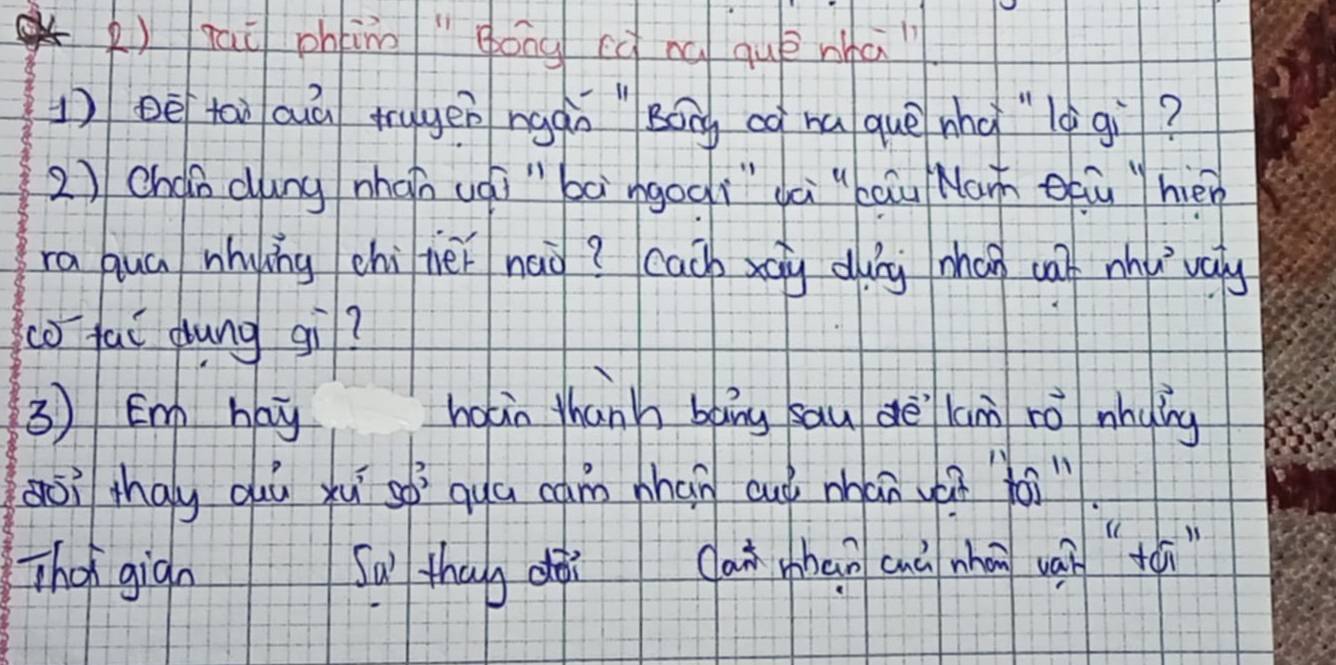 2) Tác phẩm "Bồng cà na quê nhà"
1) Đề tài của truyện ngắn "Bồng cà na quê nhà" là gì ?
2) Chân dung nhân vật "bà ngoại" và "cậu Năm Đậu" hiện
ra qua những chi tiết nào ? Cách xây dựng nhân vật như vậy
có tác dụng gì ?
3) Em hãy hoàn thành bảng sau để làm rõ những
đổi thay của xứ sở qua cảm nhận của nhân vật "tôi".
Thời gian Sự thay đổi Cảm nhận của nhân vật "tôi"